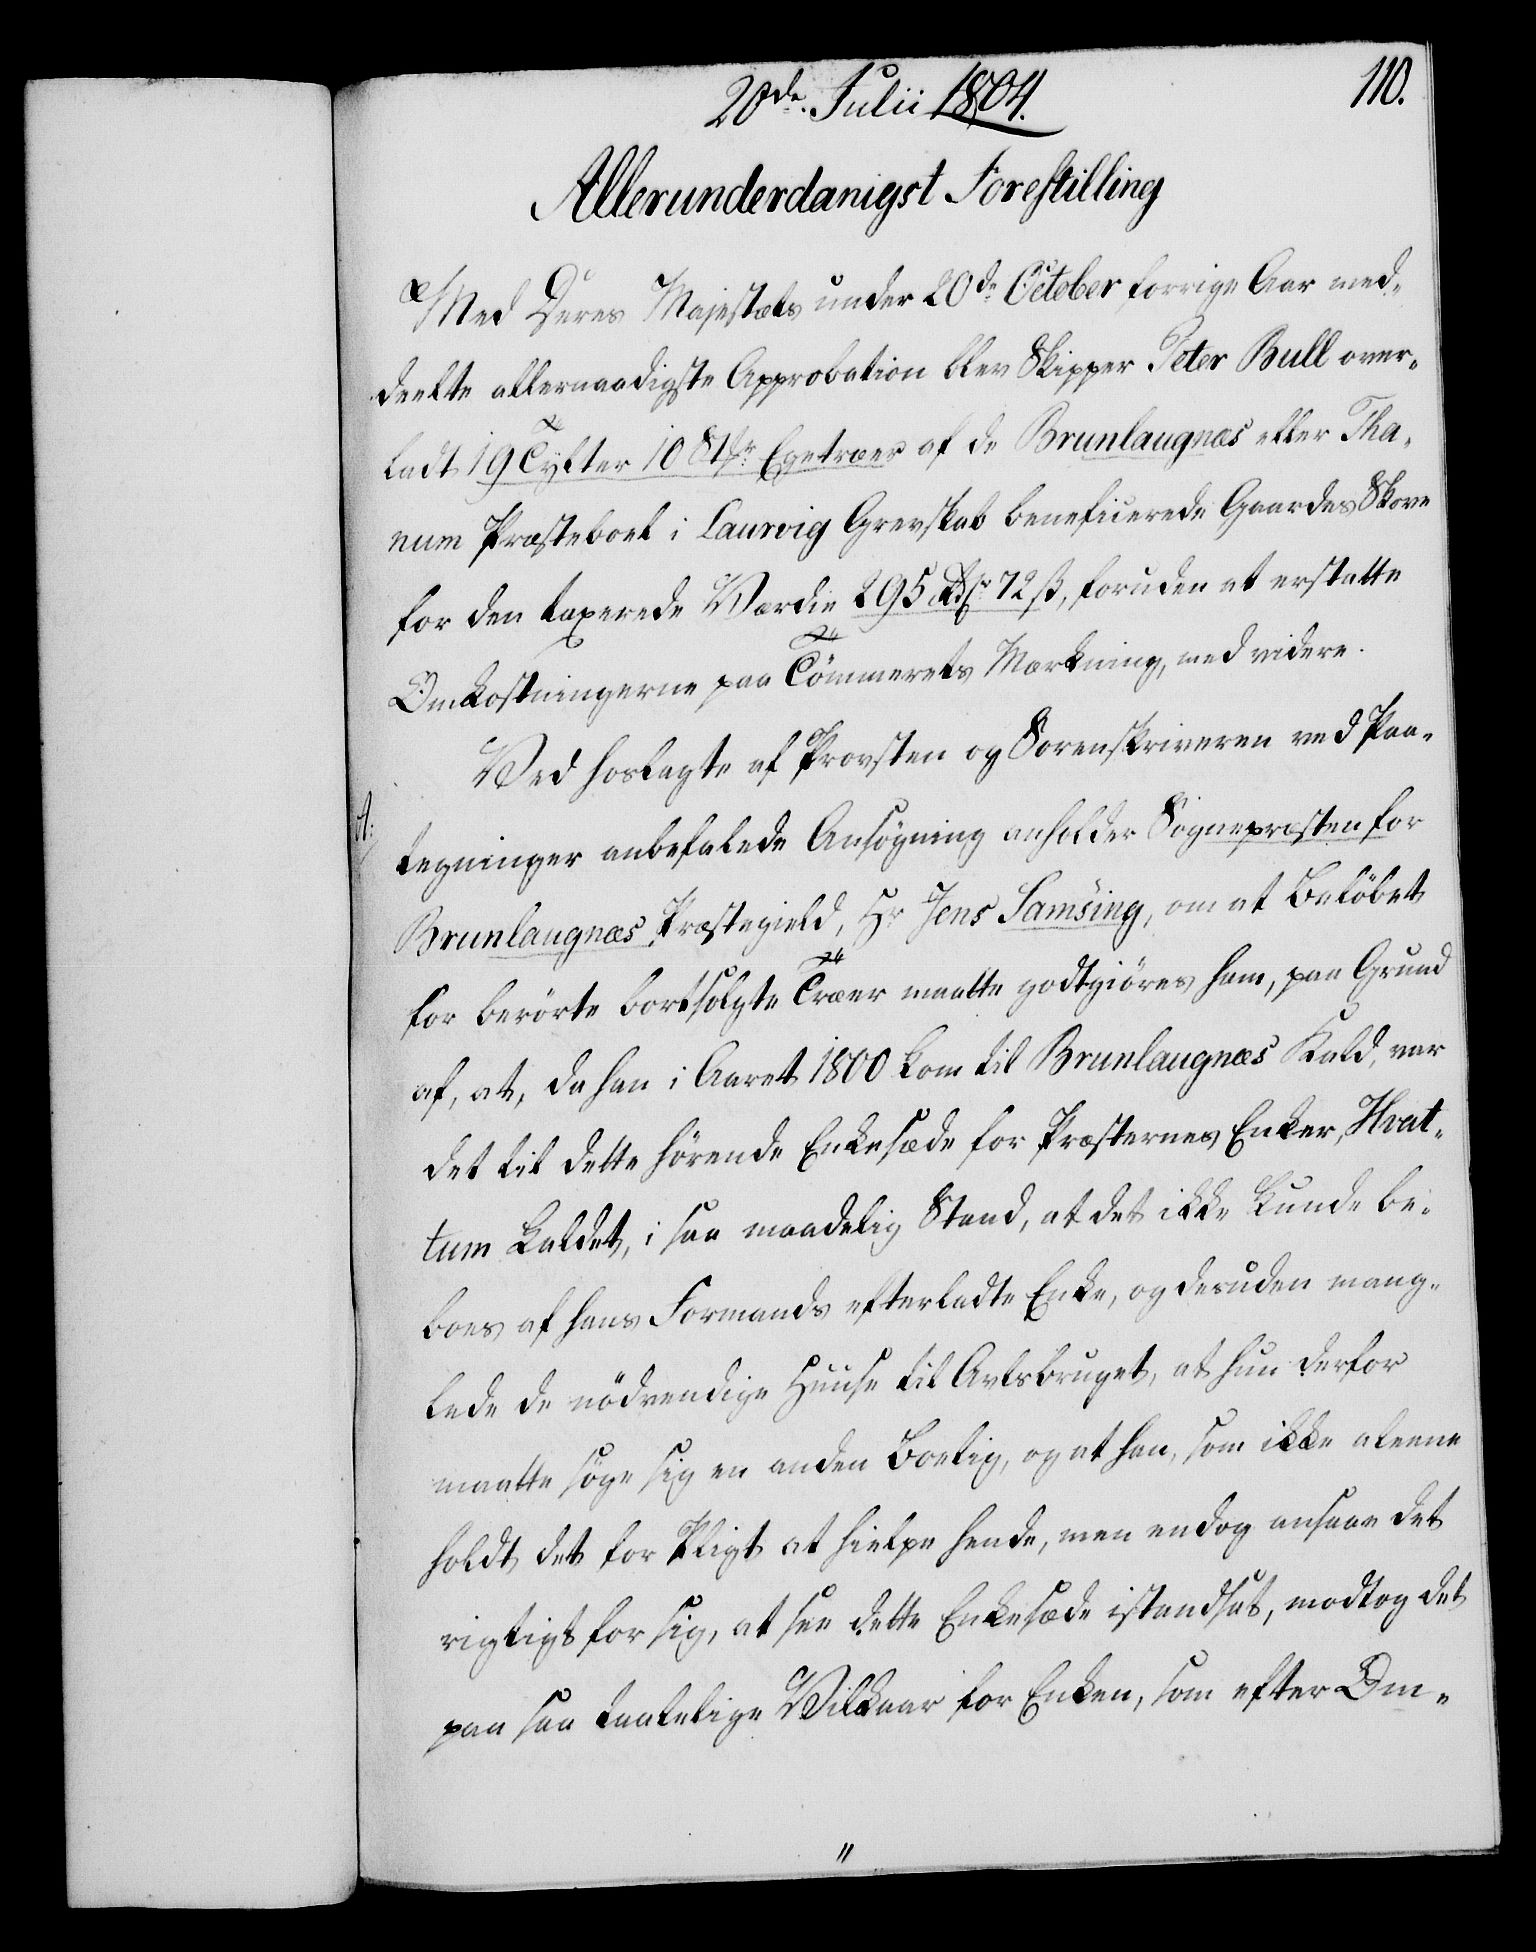 20de Julii 1804.
110.
Allerunderdanigst Forestilling
Med Deres Majestæts under 20de October forrige Aar med-
deelte allernaadigste Approbation blev Skipper Peter Bull over-
ladt 19 Tylter 10 Stkr Egetræer af de Brunlaugnæs eller Tha-
num Præsteboel i Laurvig Grevskab beneficerede Gaardes Skove
for den taxerede Værdie 295 Rdlr 72 ß, foruden at erstatte
Omkostningerne paa Tömmerets Mærkning, med videre.
Ved hoslagte af Provsten og Sorenskriveren ved Paa-
A:
tegninger anbefalede Ansögning anholder Sognepræsten for
Brunlaugnæs Præstegield, Hr Jens Samsing, om at Belöbet
for berörte bortsolgte Træer maatte godtgiöres ham, paa Grund
af, at, da han i Aaret 1800 kom til Brunlaugnæs Kald, var
det til dette hörende Enkesæde for Præsternes Enker, Hvat-
tum kaldet, i saa maadelig Stand, at det ikke kunde be-
boes af hans Formands efterladte Enke, og desuden mang-
lede de nödvendige Huuse til Avlsbruget, at hun derfor
maatte söge sig en anden Boelig, og at han, som ikke aleene
holdt det for Pligt at hielpe hende, men endog ansaae det
rigtigt for sig, at see dette Enkesæde istandsat, modtog det
paa saa taalelige Vilkaar for Enken, som efter Om-
"